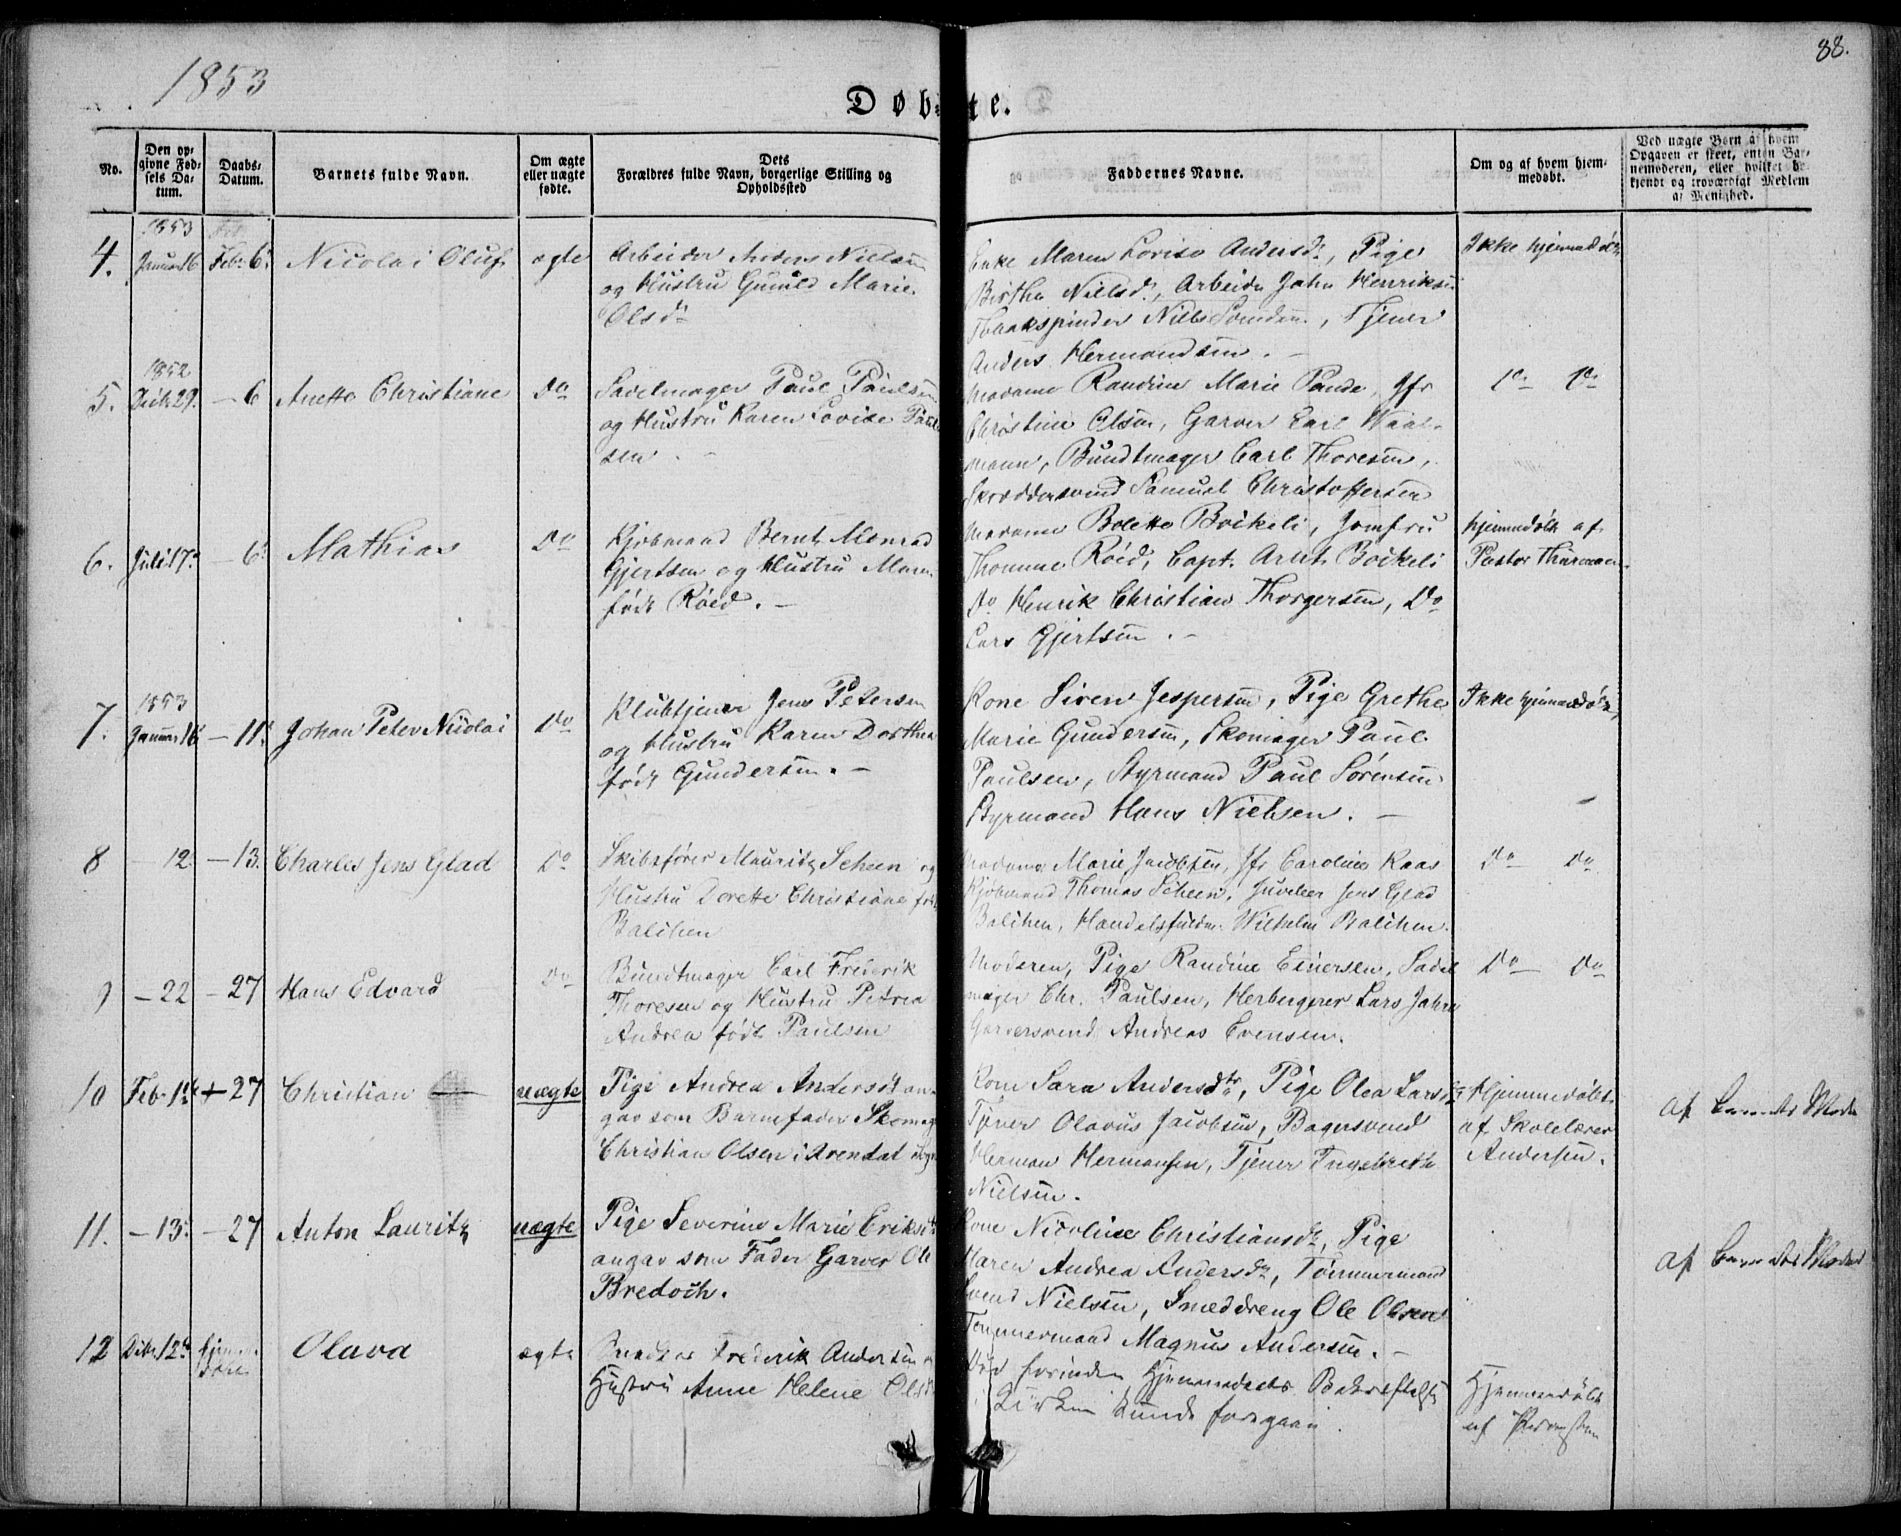 88.
1853
Døbte.
No.
Den opgivne Fødsels Datum.
Daabs-Datum.
Barnets fulde Navn.
Om ægte eller uægte fødte.
Dets Forældres fulde Navn, borgerlige Stilling og Opholdssted
Faddernes Navne.
Om og af hvem hjemmedøbt.
Ved uægte Børn af hvem Opgaven er skeet, enten Barnemoderen, eller hvilket bekjendt og troværdigt Medlem af Menighed.
1853
4. Januar 16 Feb. 6. Nicolai Oluf ægte
Arbeider Anders Nielsen
og Hustru Gunild Marie
Olsdr
Enke Maren Lovise Andersdr, Pige
Birthe Nielsdr, Arbeider John Henriksen
Tobakspinder Niels, Tjener
Anders Hermandsen.
Ikke hjemmedøbt
1852
5. Decb. 29. – 6 Anette Christiane Do
Sadelmager Paul Paulsen
og Hustru Karen Lovise Paulsen
Madame Randine Marie Pande, Jfr
Christine Olsen, Garver Carl Waalmann, Bundtmager Carl Thoresen,
Skræddersvend Samuel Christoffersen
Do Do
6. Juli 17. – 6. Mathias Do
Kjøbmand Bernt Monrad
Gjertsen og Hustru Maren
født Røed. –
Madame Bolette Boikeli, Jomfru
Thomine Røed, Capt. Arnt Boikeli
Do Henrik Christian Thorgersen, Do
Lars Gjertsen. –
hjemmedøbt af
Pastor Thurmann
1853
7. Januar 16 – 11. Johan Peter Nicolai Do
Klubtjener Jens Petersen
og Hustru Karen Dorthea
født Gundersen. –
Kone Siren Jespersen, Pige Grethe
Marie Gundersen, Skomager Paul
Paulsen, Styrmand Paul Sørensen
Styrmand Hans Nielsen. –
Ikke hjemmedøbt
8 – 12 – 13. Charles Jens Glad Do
Skibsfører Mauritz Scheen og
Hustru Dorette Christiane født
Balchen
Madame Marie Jacobsen, Jfr Caroline Kaas
Kjøbmand Thomas Scheen, Juveleer Jens Glad
Balchen, Handelsfuldm. Wilhelm Balchen.
Do Do
9 – 22 – 27 Hans Edvard Do
Bundtmager Carl Frederik
Thoresen og Hustru Petrea
Andrea født Paulsen
Moderen, Pige Randine Einersen, Sadelmager Chr. Paulsen, Herbergerer Lars Jahn
Garversvend Andreas Evensen.
Do – Do
10 Feb. + 27 Christian uægte
Pige Andrea Andersdt angav som Barnefader Skomag
Christian Olsen i Arendal
Kone Sara Andersdtr, Pige Olea Larsdr
Tjener Olavus Jacobsen, Bagersvend
Herman Hermansen, Tjener Ingebreth
Nielsen.
Hjemmedøbt
af Skolelærer
Andersen.
af Barnets Moder
11. – 13. – 27 Anton Lauritz uægte
Pige Severine Marie Eriksdt
angav som Fader Garver Ole
Bredoch.
Kone Nicoline Christiansdr, Pige
Maren Andrea Andersdr, Tømmermand
Svend Nielsen, Smeddreng Ole Olsen
Tømmermand Magnus Andersen. –
af Barnets Moder
12 Hjemmedøbt Olava ægte
Frederik Andersen og
Hustru Anne Helene Olsdr
Død forinden Hjemmedaabs Bekræftelse
i Kirken kunde foregaae
Hjemmedøbt
af